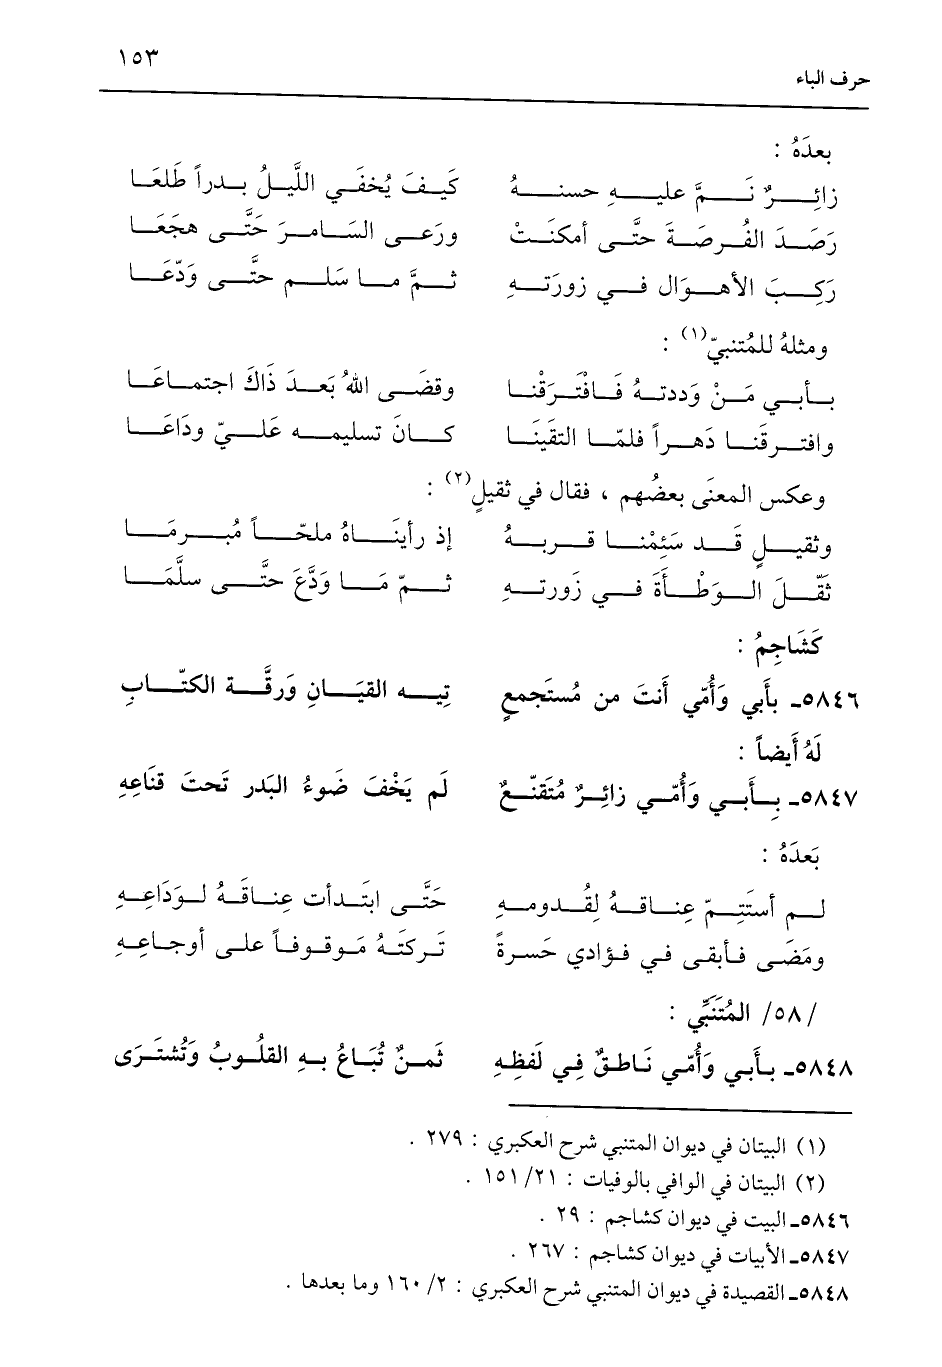 ١٥٣
حرف الباء
بعدَهُ :
زائِرٌ نَمَّ عليهِ حسنهُ كَيفَ يُخفَي اللَّيلُ بدراً طَلعَا
رَصَدَ الفُرصَةَ حتَّى أمكنَتْ ورَعى السَّامرَ حَتَّى هجَعَا
رَكِبَ الأهوَال في زورَتهِ ثمَّ ما سَلم حتَّى وَدّعَا
ومثلهُ للمُتنبيّ(١) :
بأبي مَنْ وَددتهُ فَافْتَرَقْنا وقضَى اللهُ بَعدَ ذَاكَ اجتماعَا
وافترقَنا دَهراً فلمّا التقَينَا كانَ تسليمه عَليّ ودَاعَا
وعكس المعنَى بعضُهم ، فقال في ثقيلٍ(٢) :
وثقيلٍ قَد سَئِمْنا قربهُ إذ رأينَاهُ ملحّاً مُبرمَا
ثقّلَ الوَطْأَةَ في زَورتهِ ثمّ مَا وَدَّعَ حتَّى سلَّمَا
كَشَاجِمُ :
٥٨٤٦ـ بأبي وَأُمّي أَنتَ من مُستَجمعٍ تِيه القيَانِ وَرقَّة الكتّابِ
لَهُ أَيضاً :
٥٨٤٧ـ بِأَبي وَأُمّي زائِرٌ مُتَقنّعٌ لَم يَخْفَ ضَوءُ البَدر تَحتَ قنَاعِهِ
بَعدَهُ :
لم أستَتِمّ عِناقهُ لِقُدومهِ حَتَّى ابتَدأت عِناقَهُ لوَدَاعِهِ
ومَضَى فأبقى في فؤادي حَسرةً تَركتَهُ مَوقوفاً على أوجاعِهِ
/٥٨/ المُتَنَبِّي :
٥٨٤٨ـ بأَبي وَأُمّي نَاطقٌ فِي لَفظِهِ ثَمنٌ تُبَاعُ بهِ القلُوبُ وَتُشتَرَى
(١) البيتان في ديوان المتنبي شرح العكبري : ٢٧٩ .
(٢) البيتان في الوافي بالوفيات : ٢١/ ١٥١ .
٥٨٤٦ـ البيت في ديوان كشاجم : ٢٩ .
٥٨٤٧ـ الأبيات في ديوان كشاجم : ٢٦٧ .
٥٨٤٨ـ القصيدة في ديوان المتنبي شرح العكبري : ٢/ ١٦٠ وما بعدها .